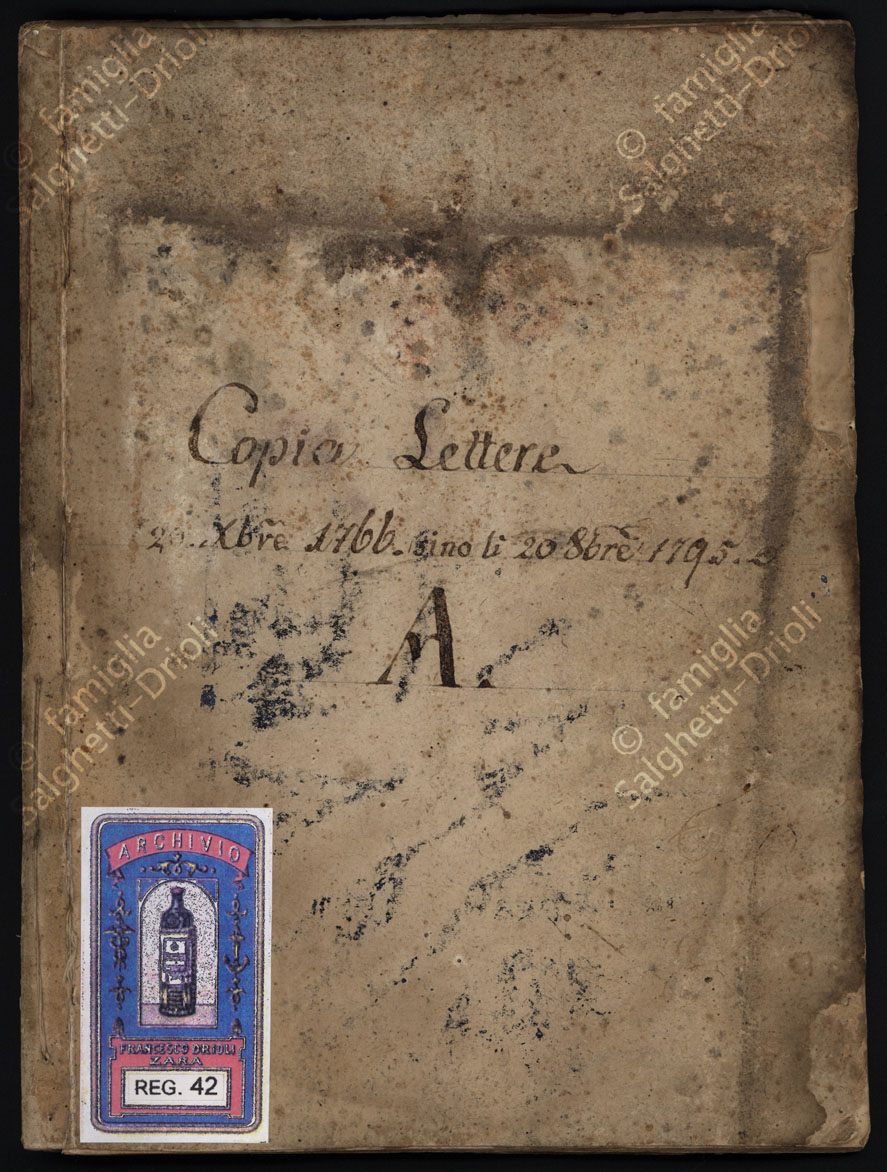 Copia Lettere
20. Xbre 1766. sino li 20 8bre 1795.
A.
ARCHIVIO
FRANCESCO DRIOLI
ZARA
REG. 42
© famiglia
Salghetti-Drioli
© famiglia
Salghetti-Drioli
© famiglia
Salghetti-Drioli
© famiglia
Salghetti-Drioli